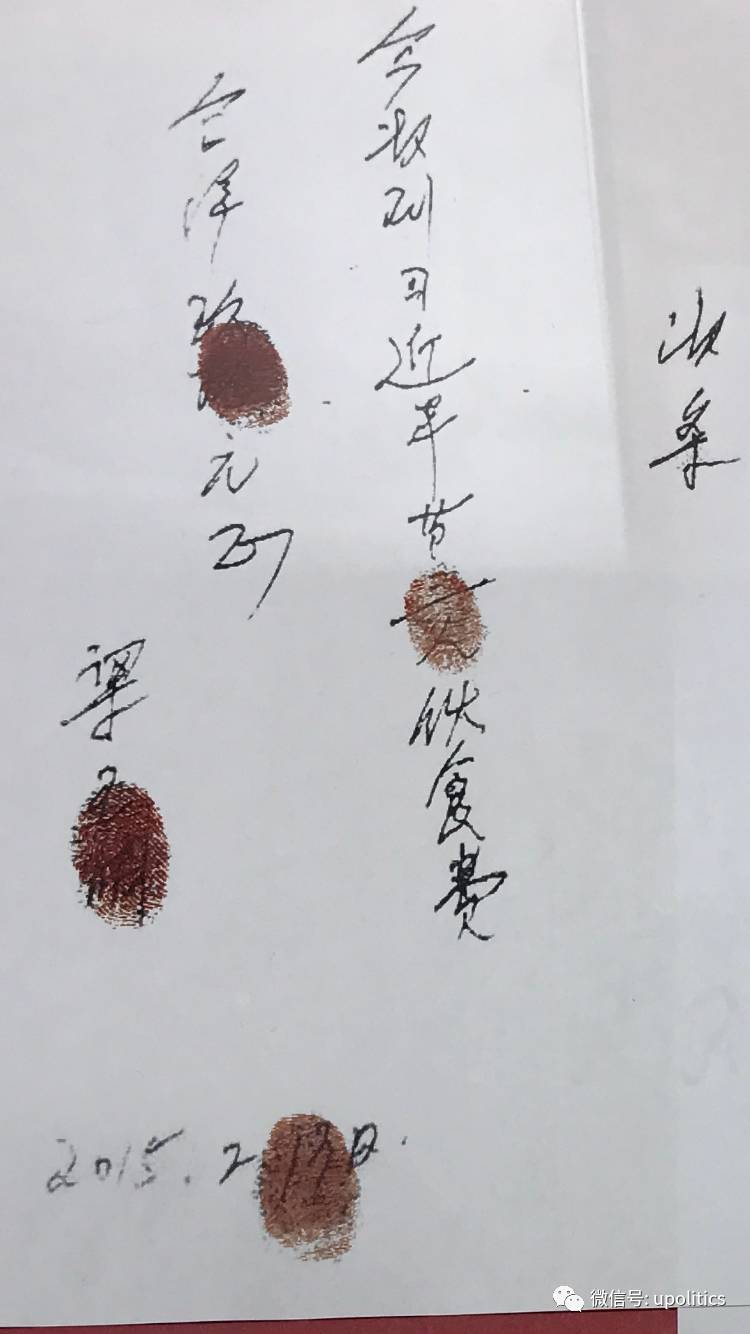 收条
今收到习近平饮食费
合洋元正
梁
2015.2.13日.
微信号: upolitics